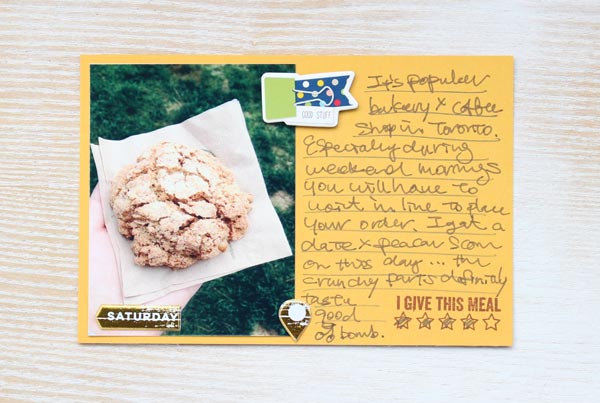 GOOD STUFF
It's popular
bakery & coffee
shop in Toronto.
Especially during
weekend mornings
you will have to
wait in line to place
your order. I got a
date & pecan scon
on this day ... the
crunchy parts definitly
taste
good
of bomb.
I GIVE THIS MEAL
SATURDAY